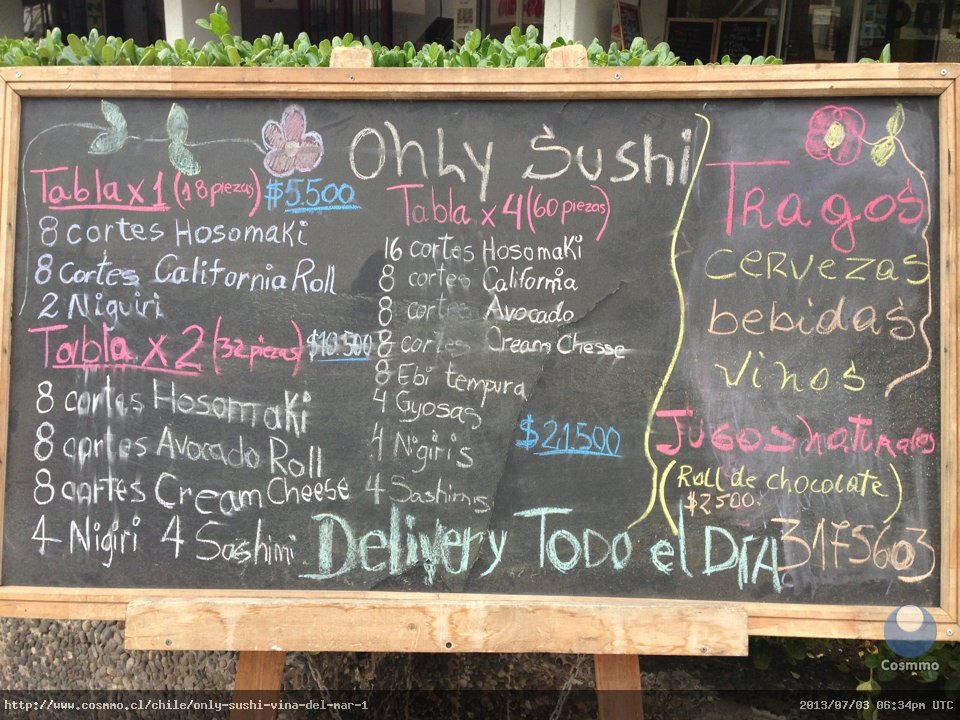 Only Sushi
Tabla x 1 (18 piezas) $5.500
8 cortes Hosomaki
8 cortes California Roll
2 Niguiri
Tabla x 2 (32 piezas) $10.500
8 cortes Hosomaki
8 cortes Avocado Roll
8 cortes Cream Cheese
4 Nigiri 4 Sashimi
Tabla x 4 (60 piezas)
16 cortes Hosomaki
8 cortes California
8 cortes Avocado
8 cortes Cream Chesse
8 Ebi tempura
4 Gyosas
4 Nigiris
4 Sashimis
$21.500
Tragos
cervezas
bebidas
vinos
Jugos naturales
(Roll de chocolate)
$2.500.
Delivery Todo el Día 3175603
Cosmmo
http://www.cosmmo.cl/chile/only-sushi-vina-del-mar-1
2013/07/03 06:34pm UTC